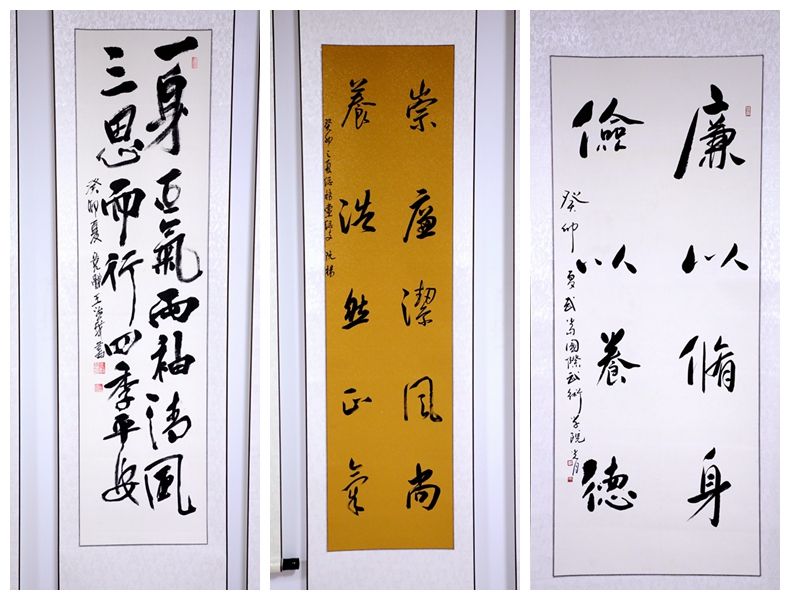 一身正氣兩袖清風
三思而行四季平安
癸卯夏
崇廉潔風尚
養浩然正氣
癸卯之夏
廉以脩身
儉以養德
癸卯夏武當國際武術學院